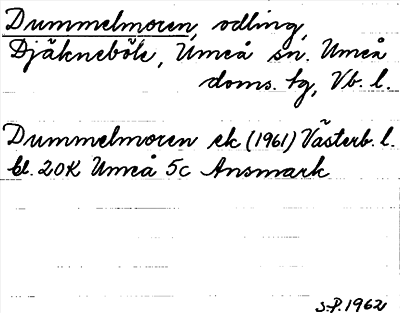 Dummelmoren, odling,
Djäkneböle, Umeå sn. Umeå
doms. tg, Vb. l.
Dummelmoren ek (1961) Västerb. l.
bl. 20K Umeå 5c Ansmark
S.P. 1962